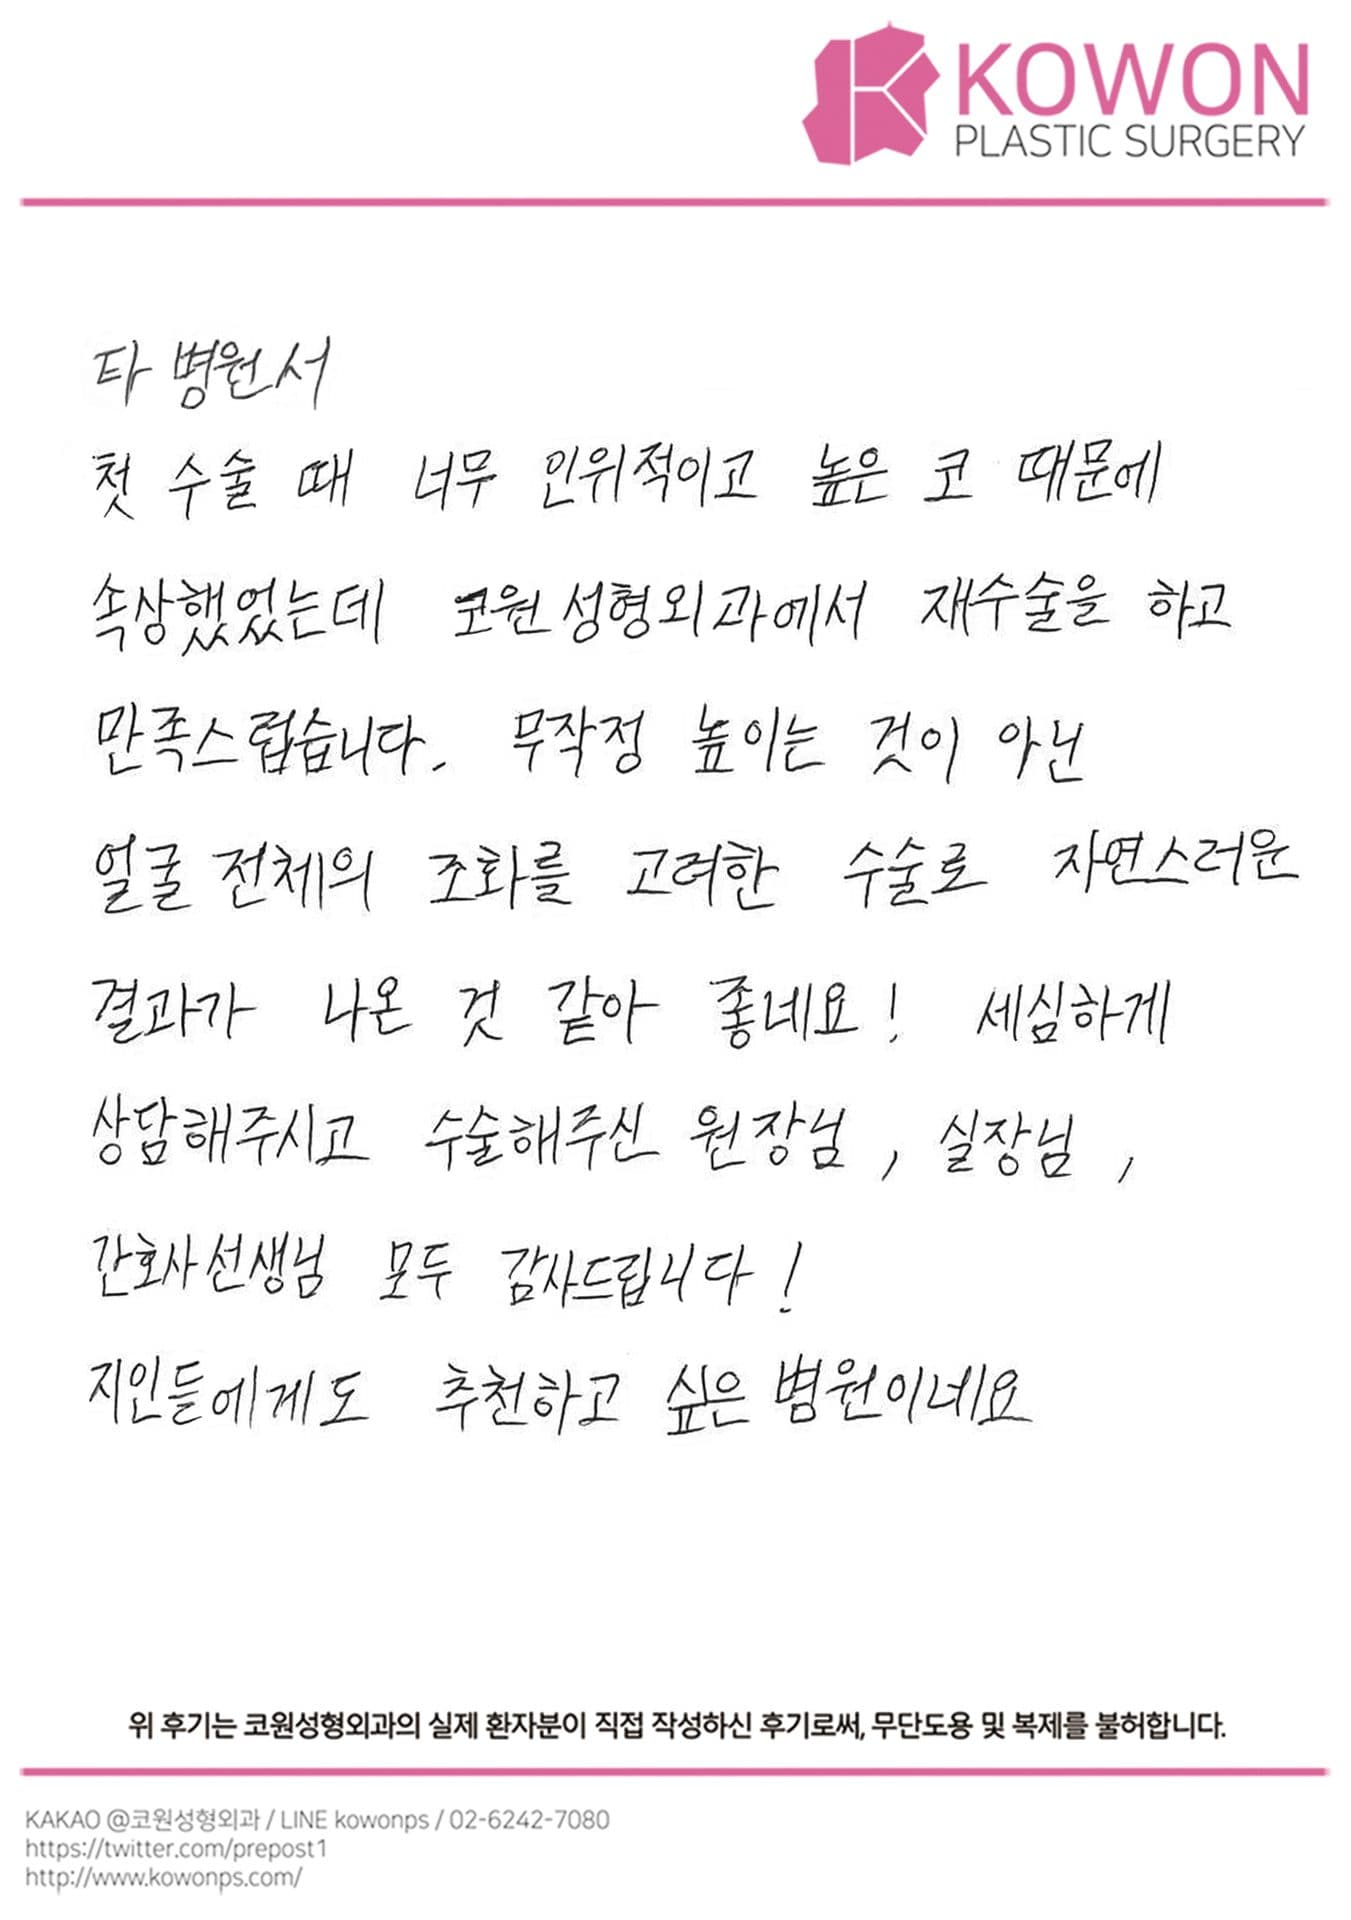 KOWON
PLASTIC SURGERY
타 병원서
첫 수술 때 너무 인위적이고 높은 코 때문에
속상했었는데 코원성형외과에서 재수술을 하고
만족스럽습니다. 무작정 높이는 것이 아닌
얼굴 전체의 조화를 고려한 수술로 자연스러운
결과가 나온 것 같아 좋네요! 세심하게
상담해주시고 수술해주신 원장님, 실장님,
간호사선생님 모두 감사드립니다!
지인들에게도 추천하고 싶은 병원이네요
위 후기는 코원성형외과의 실제 환자분이 직접 작성하신 후기로써, 무단도용 및 복제를 불허합니다.
KAKAO @코원성형외과 / LINE kowonps / 02-6242-7080
https://twitter.com/prepost1
http://www.kowonps.com/